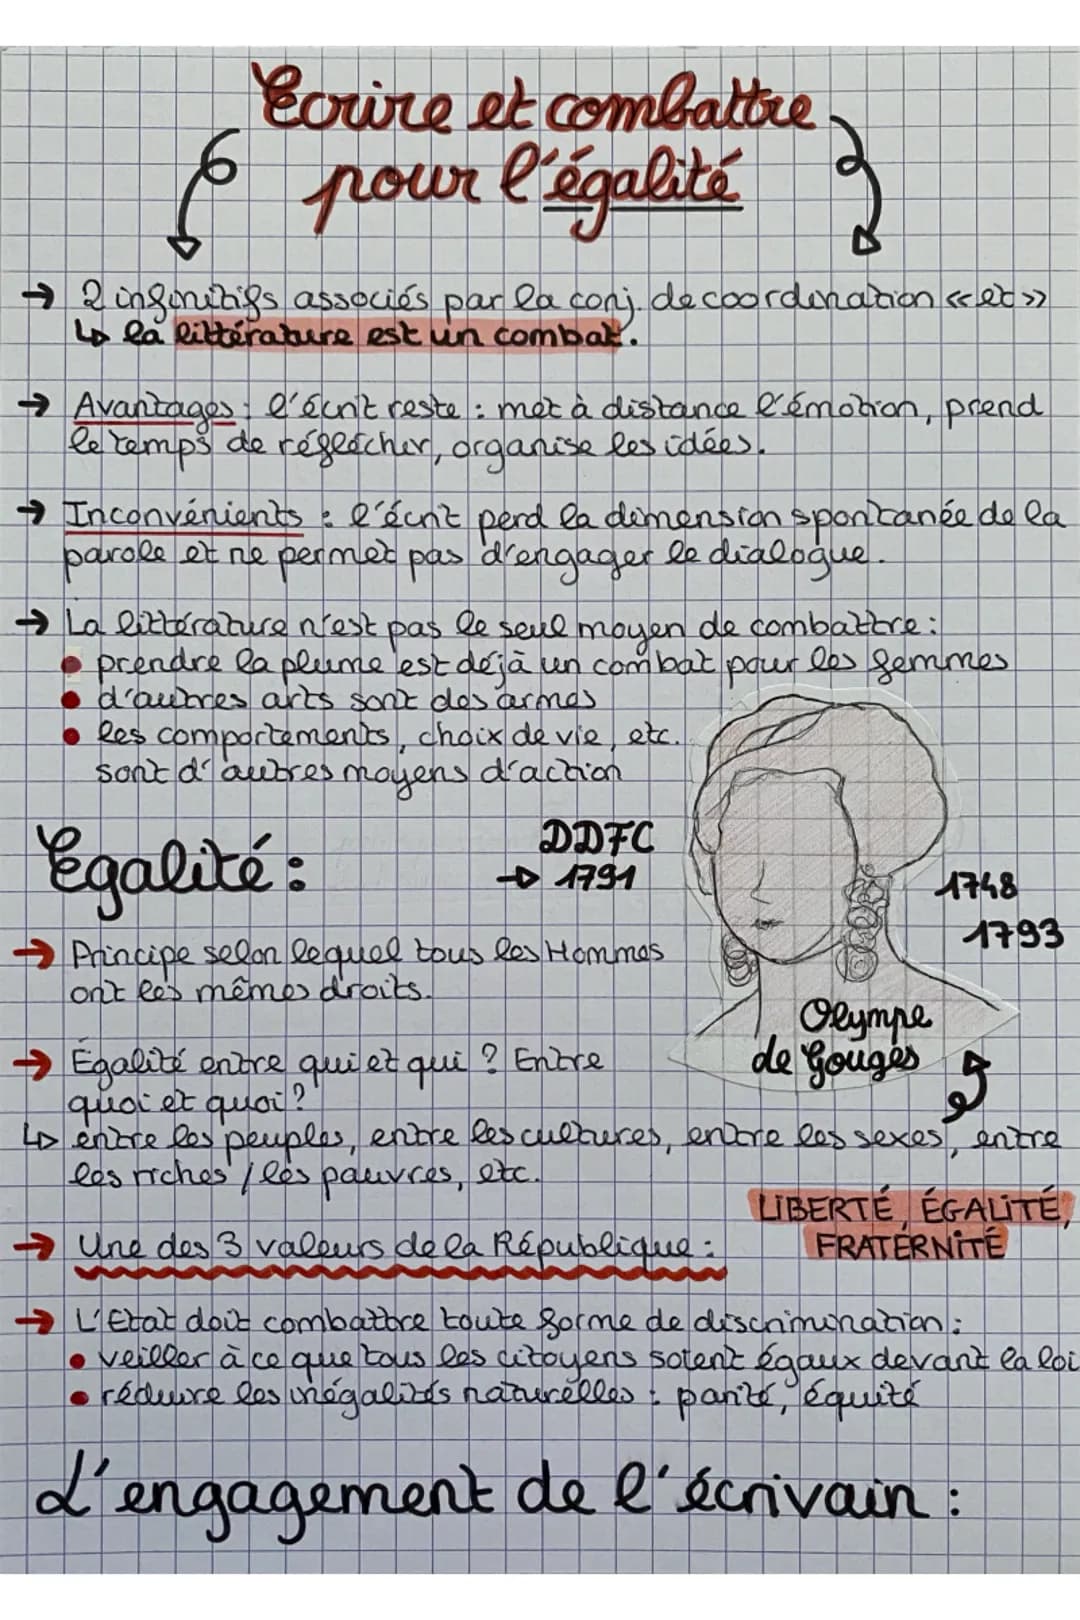 Ecrire et combattre
pour l'égalité
→ 2 infinitifs associés par la conj. de coordination «et»
↳ la littérature est un combat.
→ Avantages : l'écrit reste : met à distance l'émotion, prend
le temps de réflechir, organise les idées.
→ Inconvénients : l'écrit perd la dimension spontanée de la
parole et ne permet pas d'engager le dialogue.
→ La littérature n'est pas le seul moyen de combattre :
• prendre la plume est déjà un combat pour les femmes
• d'autres arts sont des armes
• les comportements, choix de vie, etc.
sont d'autres moyens d'action
Egalité :
DDFC
→ 1791
1748
1793
→ Principe selon lequel tous les Hommes
ont les mêmes droits.
Olympe
de Gouges
→ Egalité entre qui et qui ? Entre
quoi et quoi ?
↳ entre les peuples, entre les cultures, entre les sexes, entre
les riches / les pauvres, etc.
LIBERTÉ, ÉGALITÉ,
FRATERNITÉ
→ Une des 3 valeurs de la République :
→ L'Etat doit combattre toute forme de discrimination :
• veiller à ce que tous les citoyens soient égaux devant la loi
• réduire les inégalités naturelles : parité, équité
L'engagement de l'écrivain :